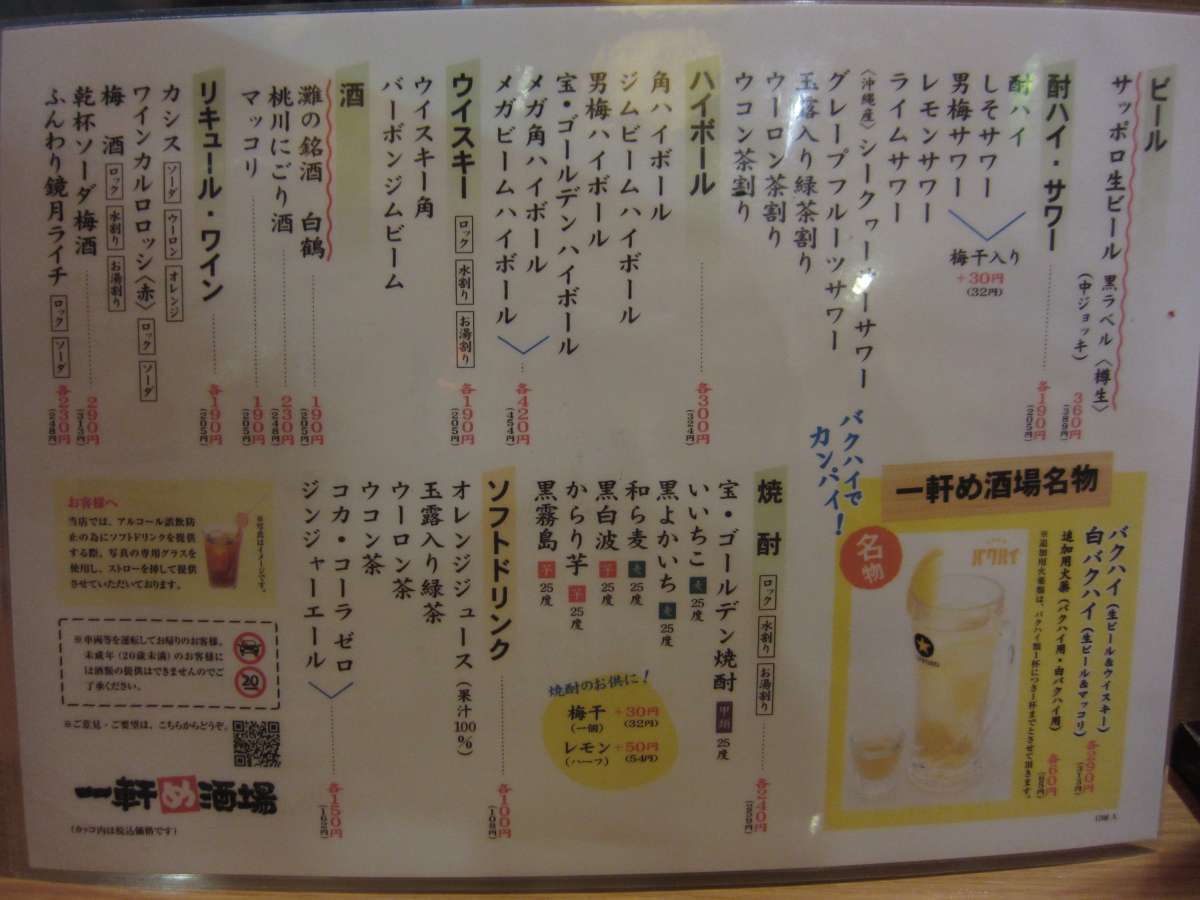 ビール
サッポロ生ビール 黒ラベル〈樽生〉
(中ジョッキ)
360円
(389円)
酎ハイ・サワー
各190円
(205円)
酎ハイ
しそサワー
男梅サワー
梅干入り
+30円
(32円)
レモンサワー
ライムサワー
〈沖縄産〉シークヮーサーサワー
グレープフルーツサワー
玉露入り緑茶割り
ウーロン茶割り
ウコン茶割り
ハイボール
各300円
(324円)
角ハイボール
ジムビームハイボール
男梅ハイボール
宝・ゴールデンハイボール
メガ角ハイボール
メガビームハイボール
各420円
(454円)
ウイスキー ロック 水割り お湯割り
各190円
(205円)
ウイスキー角
バーボンジムビーム
酒
灘の銘酒 白鶴
190円
(205円)
桃川にごり酒
230円
(248円)
マッコリ
190円
(205円)
リキュール・ワイン
各190円
(205円)
カシス ソーダ ウーロン オレンジ
ワインカルロロッシ〈赤〉 ロック ソーダ
梅酒 ロック 水割り お湯割り
乾杯ソーダ梅酒
290円
(313円)
ふんわり鏡月ライチ ロック ソーダ
各230円
(248円)
一軒め酒場名物
バクハイでカンパイ!
名物
バクハイ
バクハイ(生ビール&ウイスキー)
白バクハイ(生ビール&マッコリ)
各290円
(313円)
追加用火薬(バクハイ用・白バクハイ用)
各60円
(65円)
※追加用火薬類は、バクハイ類1杯につき1杯までとさせて頂きます。
焼酎 ロック 水割り お湯割り
各240円
(259円)
宝・ゴールデン焼酎 甲類 25度
いいちこ 麦 25度
黒よかいち 麦 25度
和ら麦 麦 25度
黒白波 芋 25度
からり芋 芋 25度
黒霧島 芋 25度
焼酎のお供に!
梅干 +30円
(一個) (32円)
レモン +50円
(ハーフ) (54円)
ソフトドリンク
各100円
(108円)
オレンジジュース(果汁100%)
玉露入り緑茶
ウーロン茶
ウコン茶
コカ・コーラ ゼロ
ジンジャーエール
各150円
(162円)
お客様へ
当店では、アルコール誤飲防
止の為にソフトドリンクを提供
する際、写真の専用グラスを
使用し、ストローを挿して提供
させていただいております。
※写真はイメージです。
※車両等を運転してお帰りのお客様、
未成年(20歳未満)のお客様に
は酒類の提供はできませんのでご
了承ください。
20
※ご意見・ご要望は、こちらからどうぞ。
一軒め酒場
(カッコ内は税込価格です)